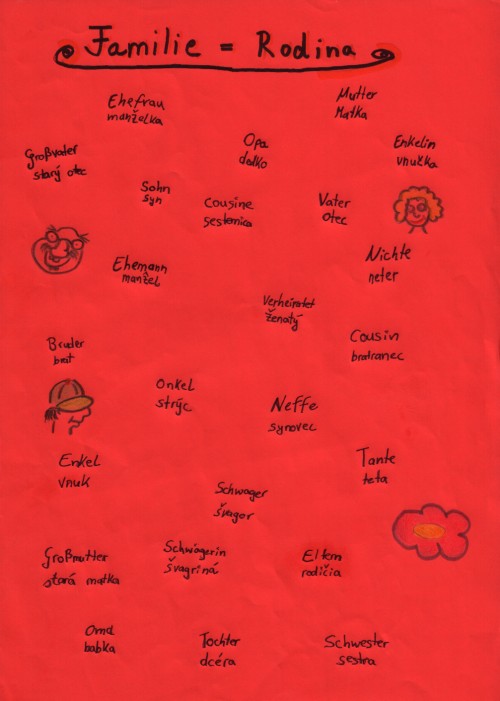 Familie = Rodina
Ehefrau
manželka
Mutter
Matka
Großvater
starý otec
Opa
dedko
Enkelin
vnučka
Sohn
syn
Cousine
sesternica
Vater
otec
Ehemann
manžel
Nichte
neter
Verheiratet
ženatý
Bruder
brat
Cousin
bratranec
Onkel
strýc
Neffe
synovec
Enkel
vnuk
Tante
teta
Schwager
švagor
Großmutter
stará matka
Schwägerin
švagriná
Eltern
rodičia
Oma
babka
Tochter
dcéra
Schwester
sestra